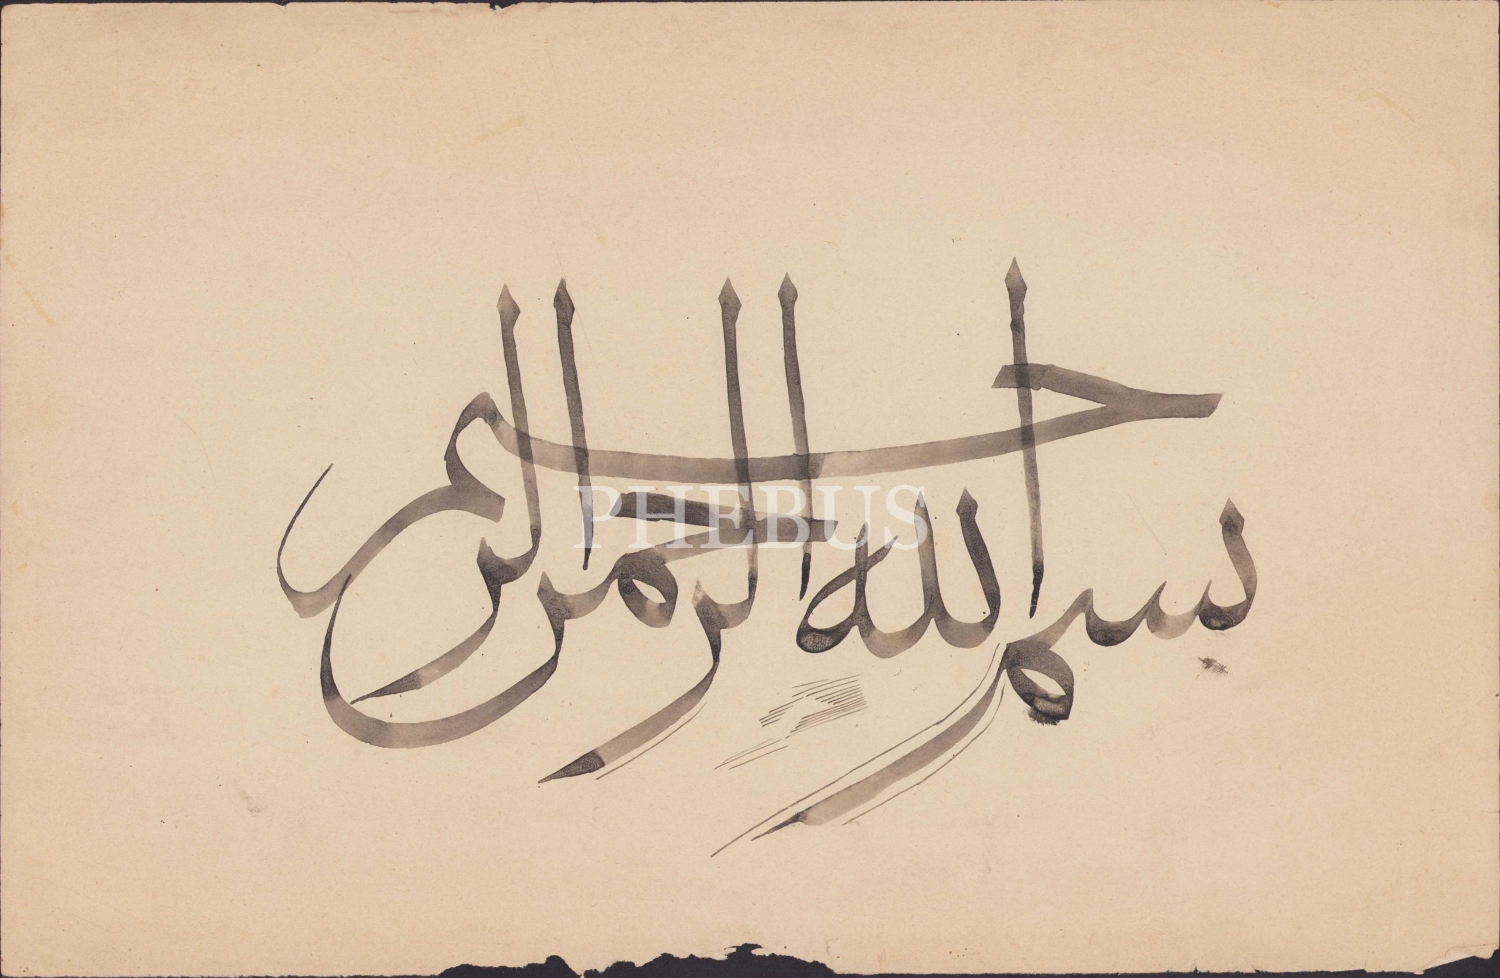 بسم الله الرحمن الرحيم
PHEBUS